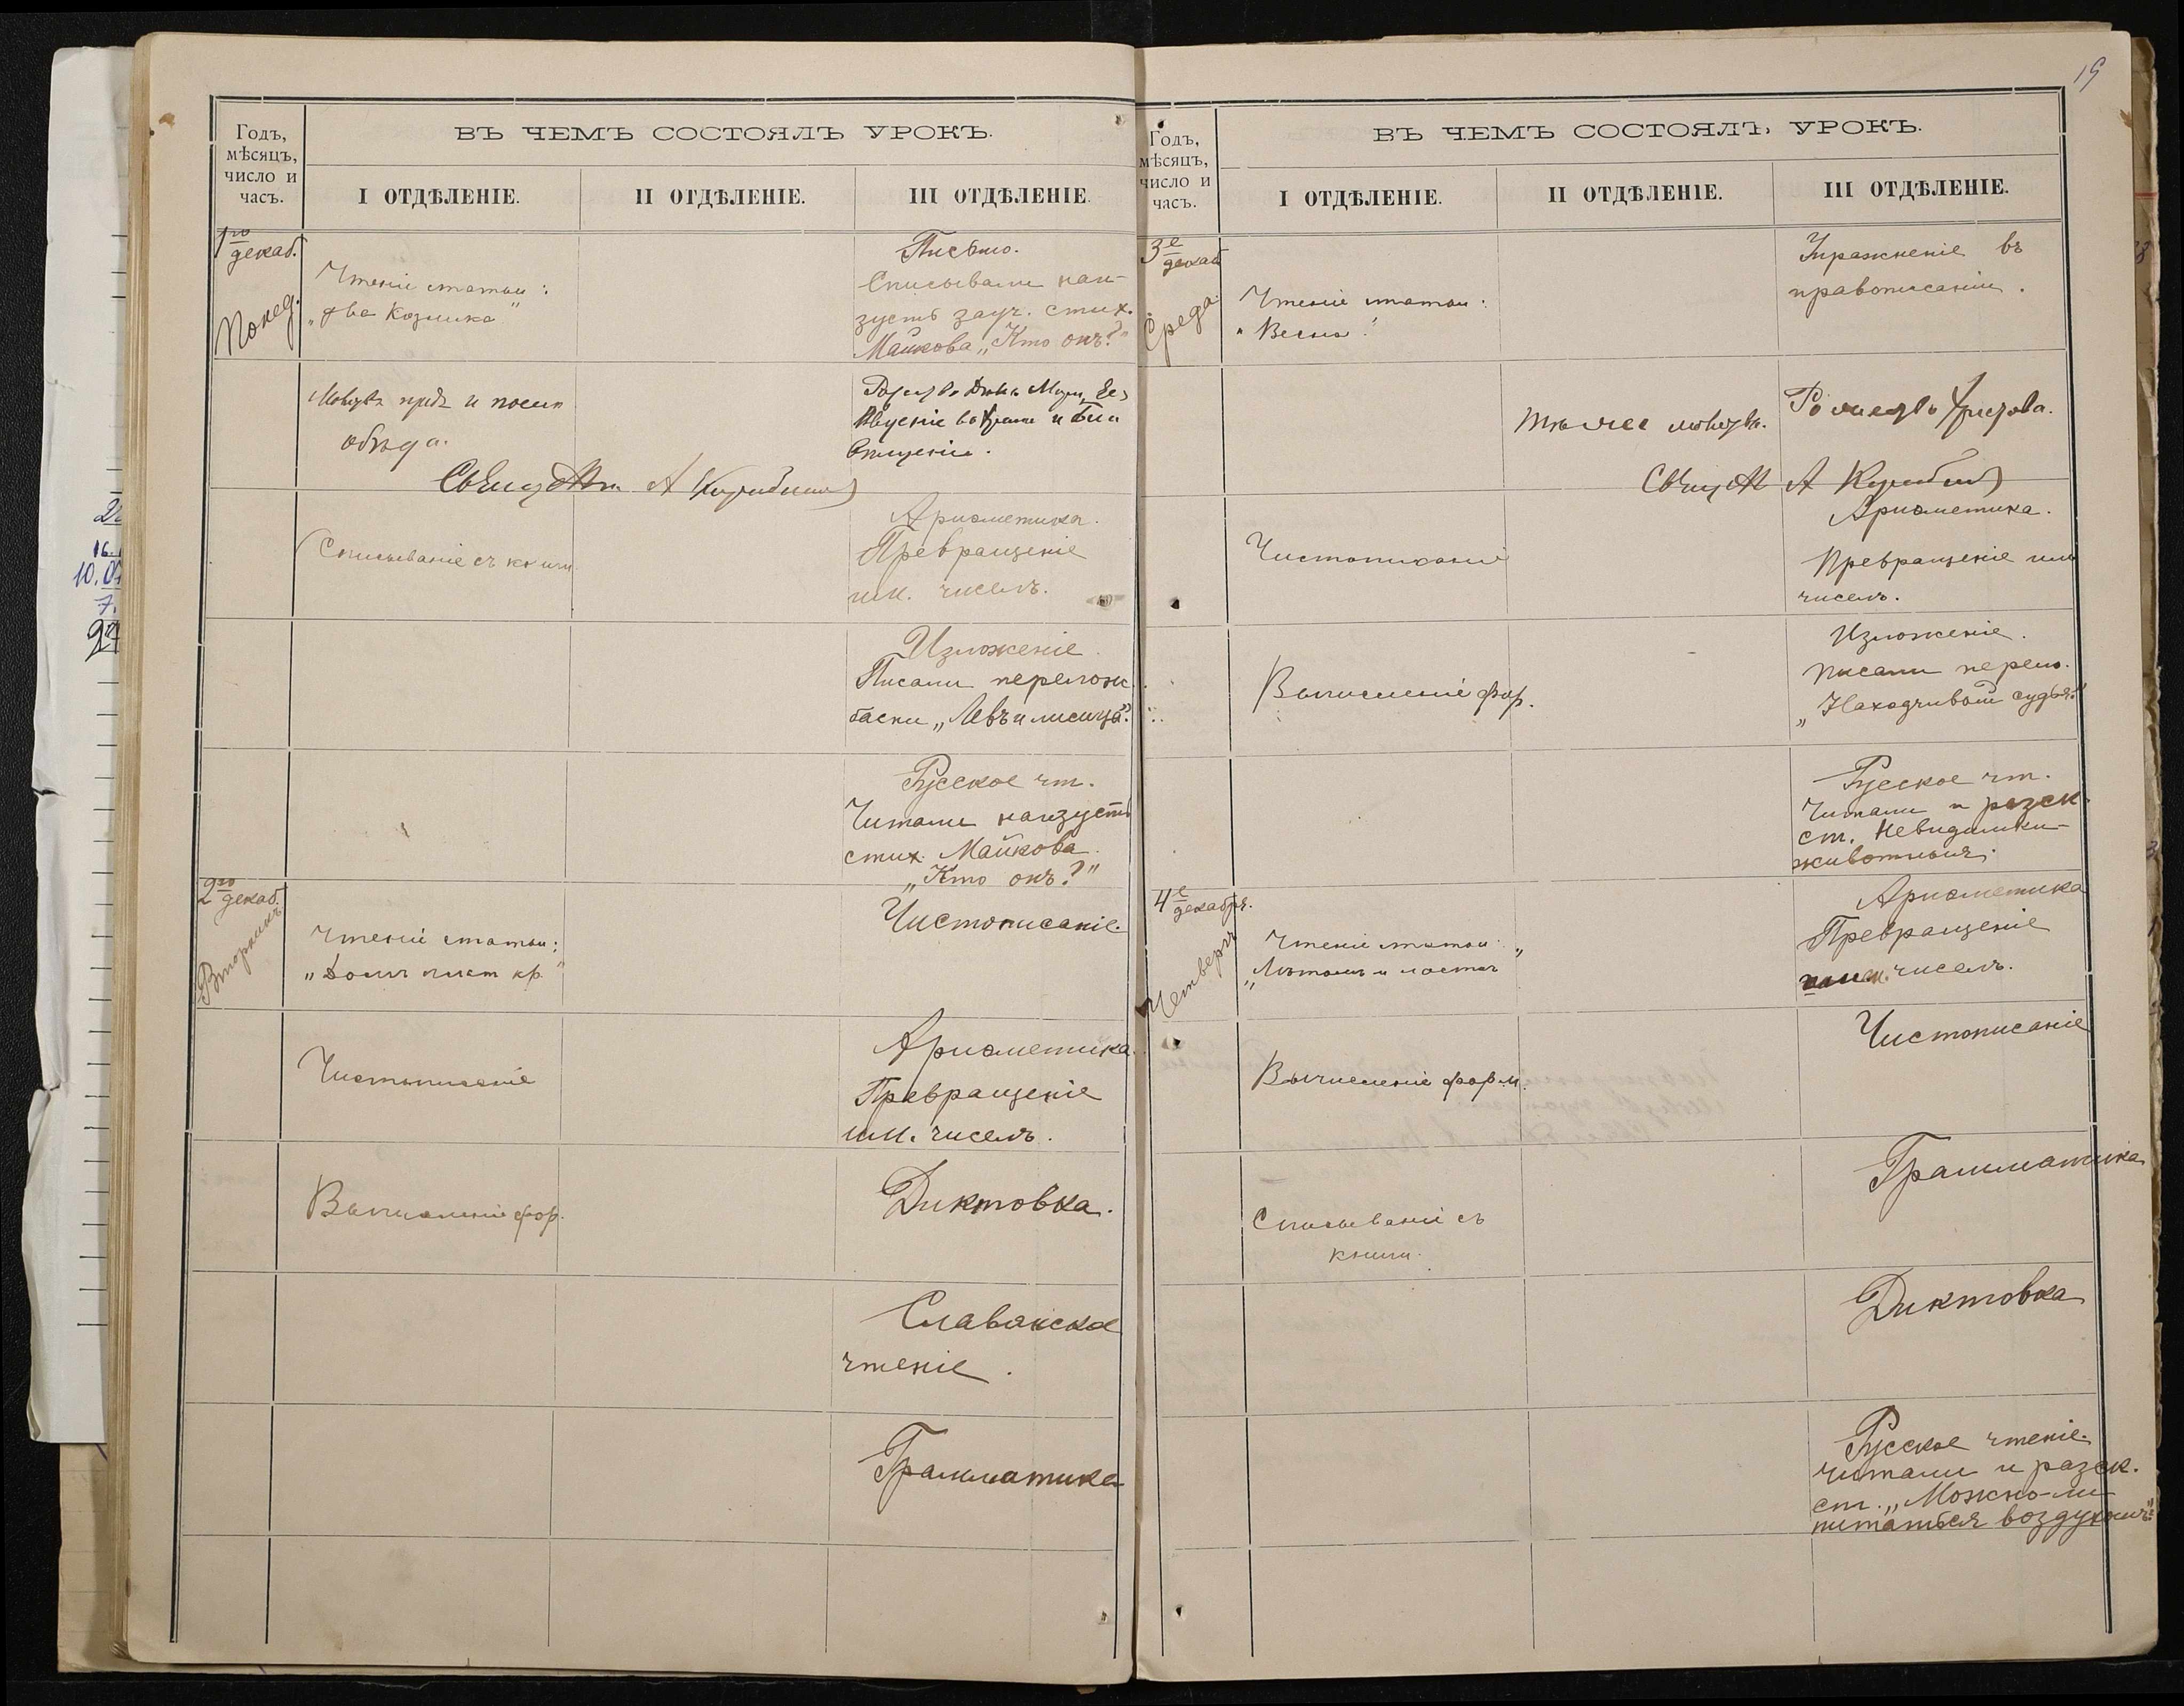 19
Годъ,
мѣсяцъ,
число и
часъ.
ВЪ ЧЕМЪ СОСТОЯЛЪ УРОКЪ.
I ОТДѢЛЕНІЕ.
II ОТДѢЛЕНІЕ.
III ОТДѢЛЕНІЕ.
1го
декаб.
Понед.
Чтеніе статьи:
„Два Козлика"
Письмо.
Списывали наи-
зусть зауч. стих.
Майкова „Кто онъ?"
Молитва предъ и посли
обѣда.
введеніе во храмъ и
А
Списываніе съ книги.
Ариѳметика.
Превращеніе
им. чиселъ.
Изложеніе.
Писали перелож.
басни „Левъ и лисица".
Русское чт.
Читали наизусть
стих. Майкова
„Кто онъ?"
2го
декаб.
Вторникъ
Чтеніе статьи:
Чистописаніе.
Чистописаніе
Ариѳметика.
Превращеніе
им. чиселъ.
Вычисленіе фор.
Диктовка.
Славянское
чтеніе.
Грамматика
Годъ,
мѣсяцъ,
число и
часъ.
ВЪ ЧЕМЪ СОСТОЯЛЪ УРОКЪ.
I ОТДѢЛЕНІЕ.
II ОТДѢЛЕНІЕ.
III ОТДѢЛЕНІЕ.
3е
декаб
Среда.
Чтеніе статьи:
„Весна."
Упражненіе въ
правописаніи.
молитва.
Рождество Христова.
А
Чистописаніе
Ариѳметика.
Превращеніе им.
чиселъ.
Вычисленіе фор.
Изложеніе.
Писали перело.
„Находчивый судья."
Русское чт.
Читали и разск.
ст. Невидимки-
животныя.
4е
декабря.
Четвергъ
Чтеніе статьи:
Ариѳметика
Превращеніе
имен. чиселъ.
Вычисленіе форм.
Чистописаніе
Списываніе съ
книги.
Грамматика
Диктовка
Русское чтеніе.
читали и разск.
ст. „Можно-ли
питаться воздухомъ"